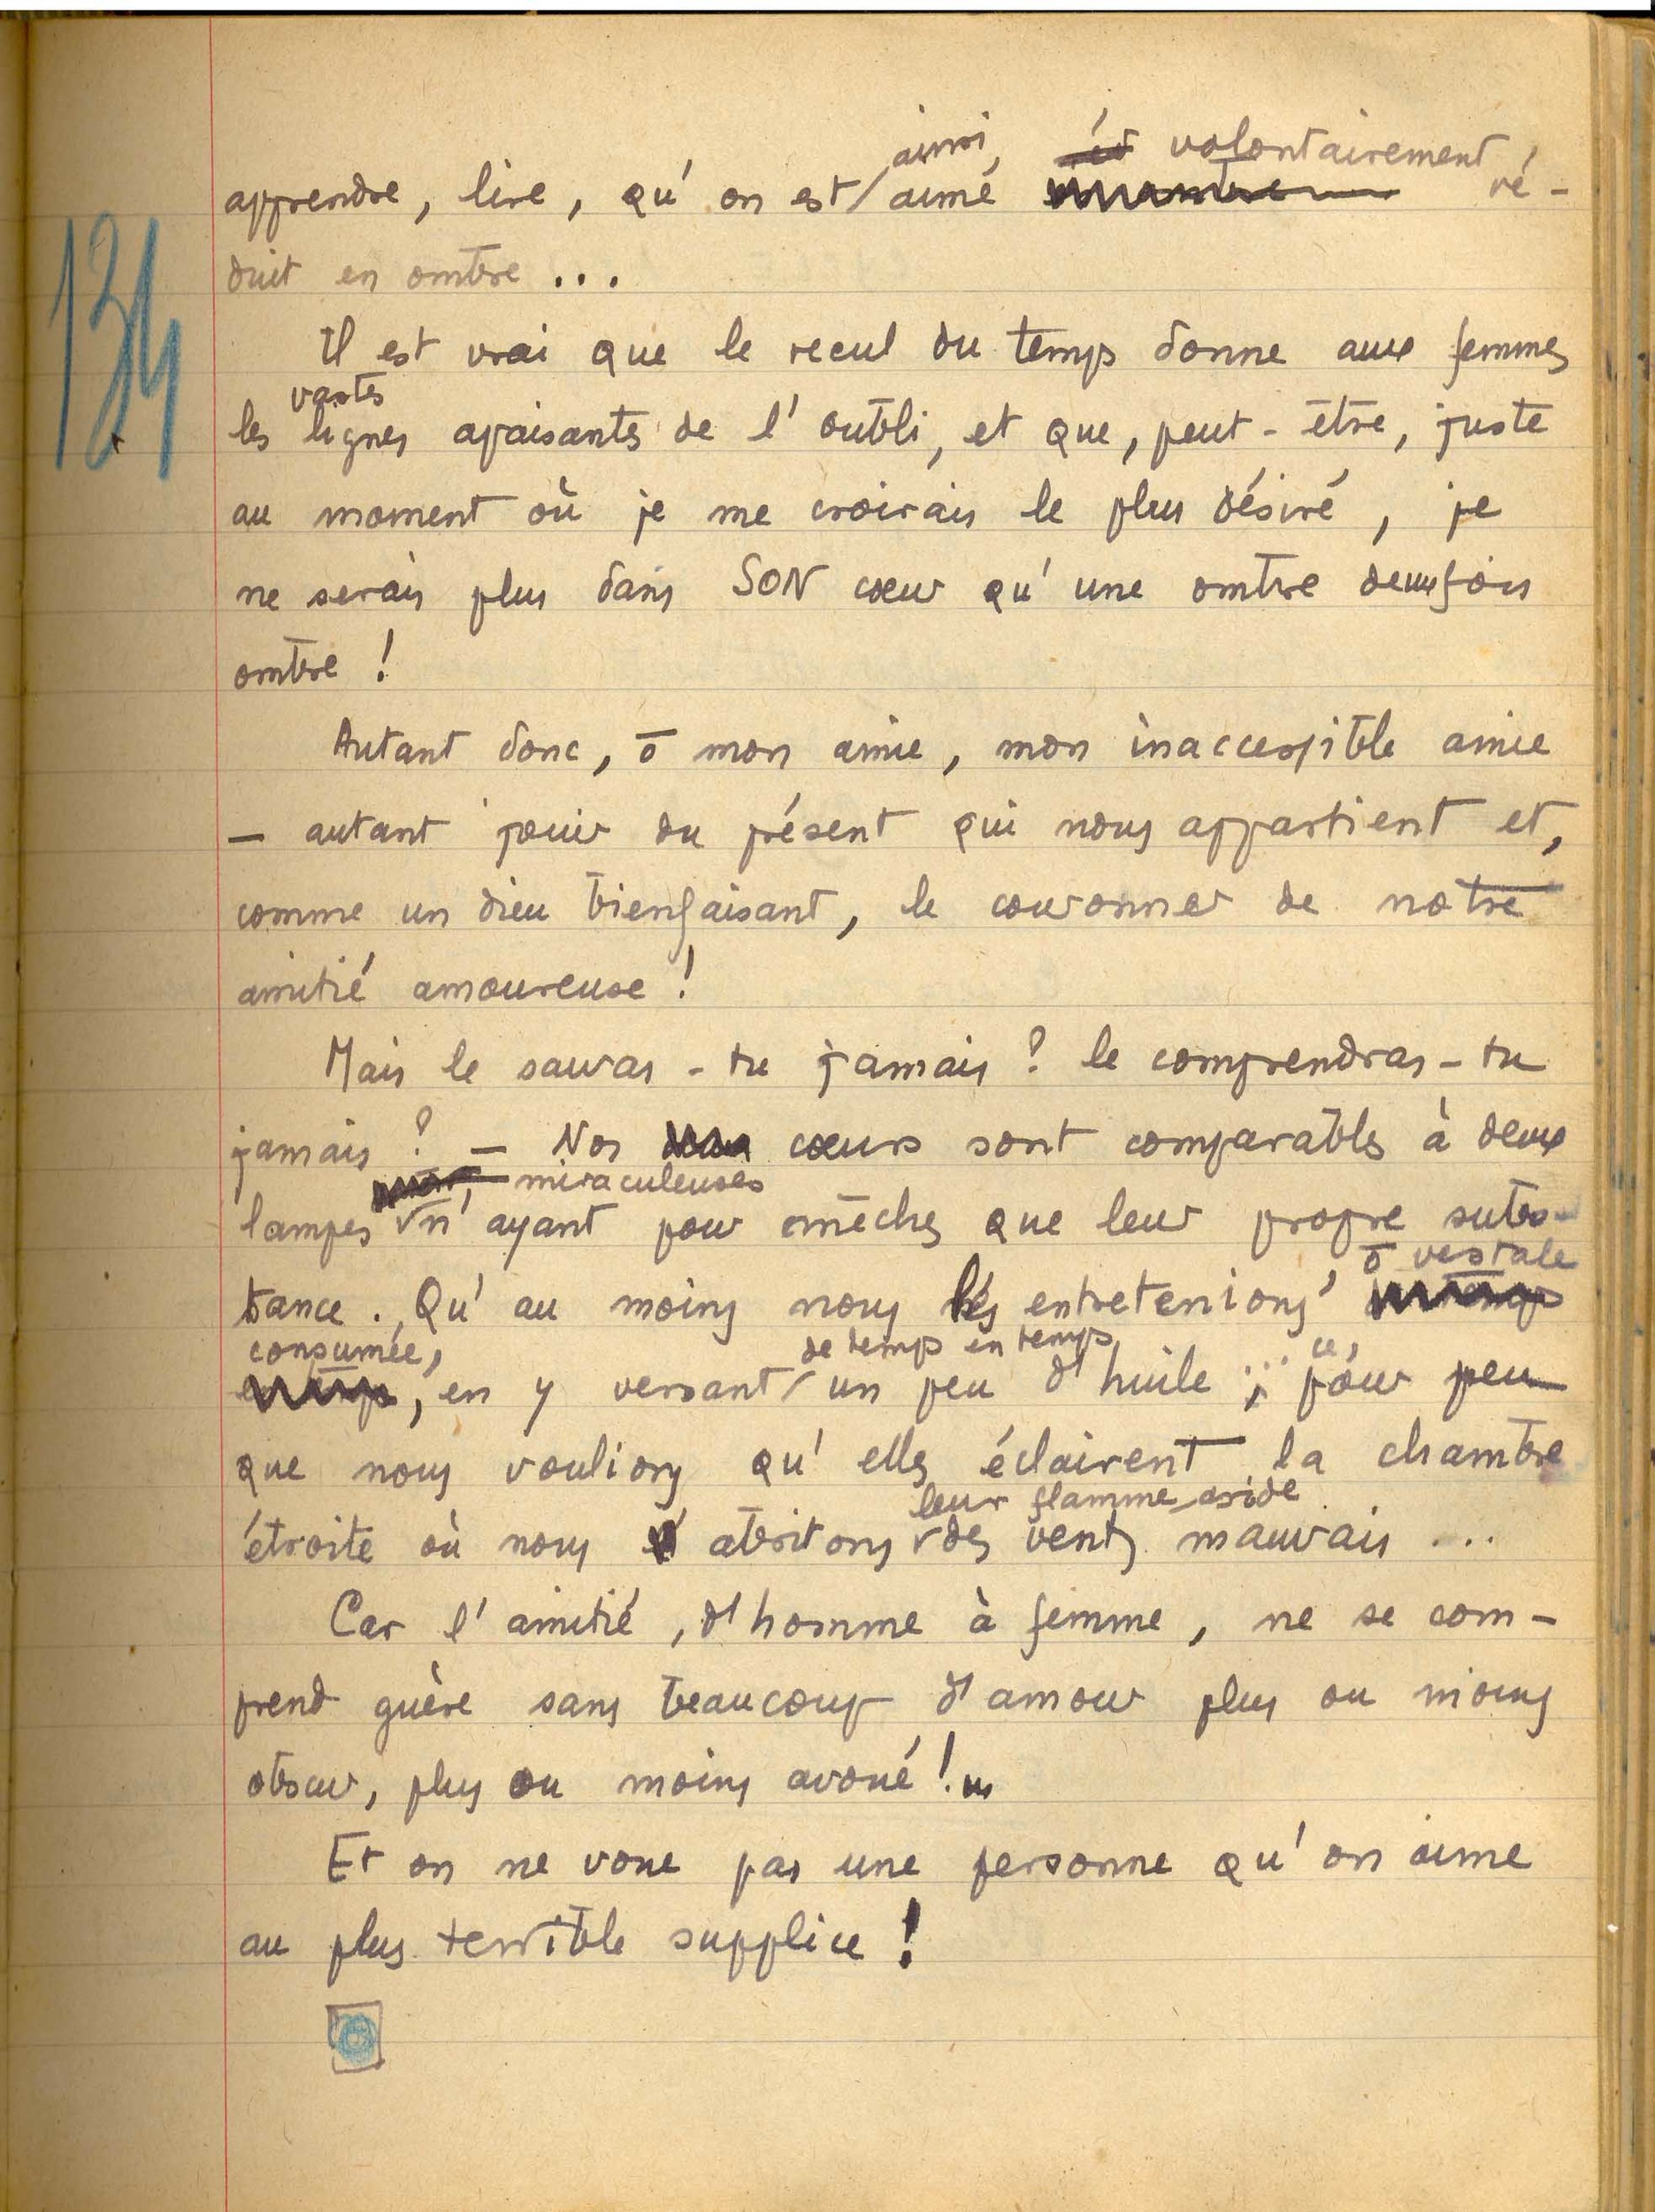 134
ainsi, volontairement
apprendre, lire, qu'on est aimé ré-
duit en ombre ...
Il est vrai que le recul du temps donne aux femmes
vastes
les lignes apaisantes de l'oubli, et que, peut-être, juste
au moment où je me croirais le plus désiré, je
ne serais plus dans SON cœur qu'une ombre deux fois
ombre !
Autant donc, ô mon amie, mon inaccessible amie
— autant jouir du présent qui nous appartient et,
comme un dieu bienfaisant, le couronner de notre
amitié amoureuse !
Mais le sauras-tu jamais ? le comprendras-tu
jamais ? — Nos cœurs sont comparables à deux
miraculeuses
lampes n'ayant pour mèches que leur propre subs-
ô vestale
tance. Qu'au moins nous les entretenions,
consumée, de temps en temps, ce,
, en y versant un peu d'huile ; pour peu
que nous voulions qu'elles éclairent la chambre
leur flamme aride
étroite où nous abritons des vents mauvais ...
Car l'amitié, d'homme à femme, ne se com-
prend guère sans beaucoup d'amour plus ou moins
obscur, plus ou moins avoué !...
Et on ne voue pas une personne qu'on aime
au plus terrible supplice !